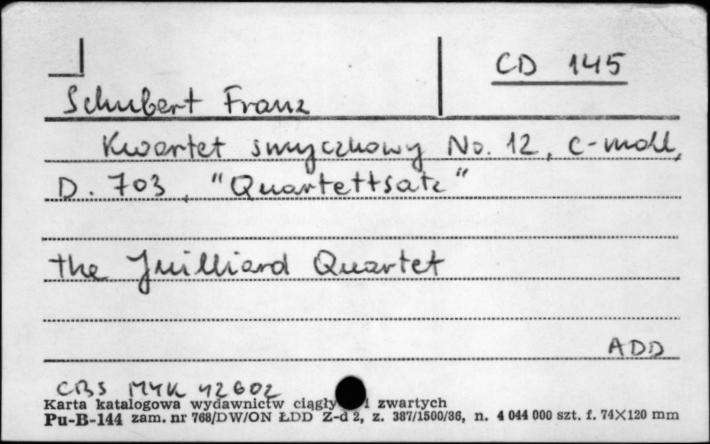 CD 145
Schubert Franz
Kwartet smyczkowy No. 12, c-moll,
D. 703, "Quartettsatz"
the Juilliard Quartet
ADD
CBS MYK 42602
Karta katalogowa wydawnictw ciągły i zwartych
Pu-B-144 zam. nr 768/DW/ON ŁDD Z-d 2, z. 387/1500/86, n. 4 044 000 szt. f. 74X120 mm